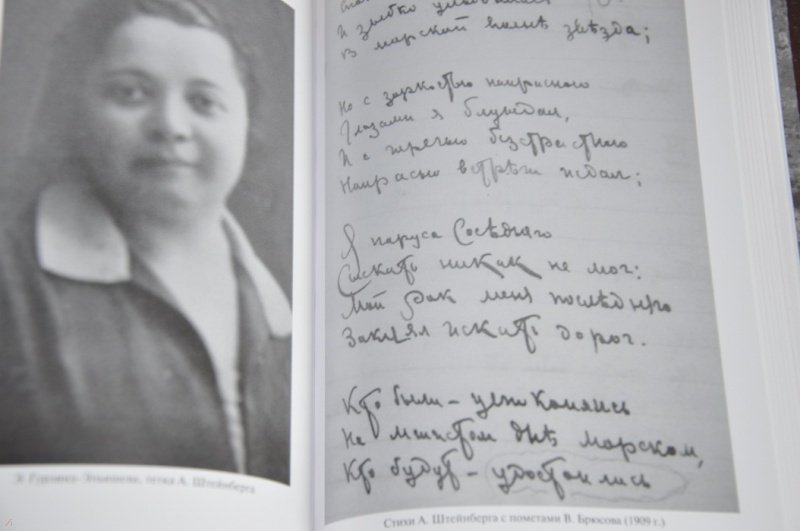 И зыбко
В морской звѣзда;
Но с зоркостью напрасного
Глазами я блуждал,
И с бесстрастною
Напрасно встрѣчи ждал;
Я паруса Сосѣдняго
Сыскать никак не мог:
Мой рок меня послѣдняго
Заклял искать дорог.
Кто были – цѣпи
На мшистом днѣ морском,
Кто будут – удостоились
тетка А. Штейнберга
Стихи А. Штейнберга с пометами В. Брюсова (1909 г.)